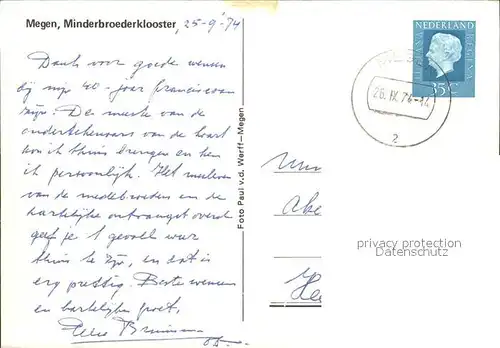 Megen, Minderbroederklooster, 25-9-'74
Dank voor goede wensen
bij mijn 40-jaar franciscaan
zijn! De meeste van de
ondertekenaars van de kaart
kon ik thuis brengen en ken
ik persoonlijk. Het meeleven
van de medebroeders en de
hartelijke ontvangst overal
geeft je 't gevoel weer
thuis te zijn, en dat is
erg prettig. Beste wensen
en hartelijke groet,
Foto Paul v.d. Werff-Megen
NEDERLAND
JULIANA REGINA
35 c
26.IX.74-14
2
privacy protection
Datenschutz